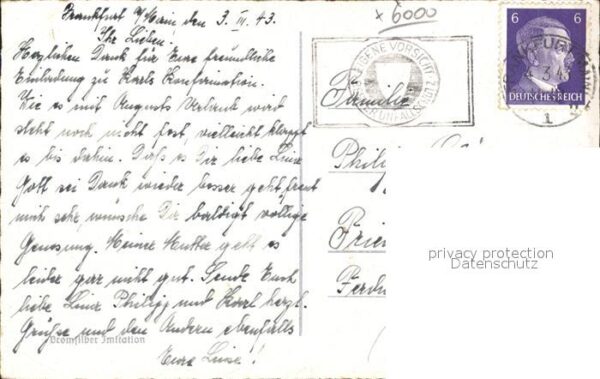 Frankfurt a/Main den 3. III. 43.
Ihr Lieben!
Herzlichen Dank für Eure freundliche
Einladung zu Karls Konfirmation.
Wie es mit Augusts Urlaub wird
steht noch nicht fest, vielleicht klappt
es bis dahin. Dass es Dir liebe Lina
Gott sei Dank wieder besser geht freut
mich sehr, wünsche Dir baldigst völlige
Genesung. Meiner Mutter geht es
leider gar nicht gut. Sende Euch
liebe Lina Philipp und Karl herzl.
Grüße und den Andern ebenfalls
Eure Luise!
Bromsilber Imitation
x 6000
EIGENE VORSICHT
UNFALLSCHUTZ
6 6
DEUTSCHES REICH
Familie
Philip
Frie
Ferd
privacy protection
Datenschutz